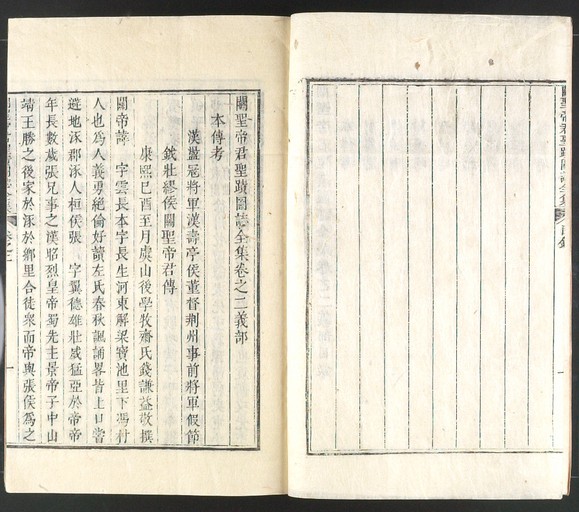 關聖帝君聖蹟圖誌全集
目錄
關聖帝君聖蹟圖誌全集卷之二義部
本傳考
漢盪寇將軍漢壽亭侯董督荆州事前將軍假節
鉞壯繆侯關聖帝君傳
康熙己酉至月虞山後學牧齋氏錢謙益敬撰
關帝諱 字雲長本字長生河東解梁寶池里下馮村
人也為人義勇絕倫好讀左氏春秋諷誦畧皆上口嘗
避地涿郡涿人桓侯張 字翼德雄壯威猛亞於帝帝
年長數歲張兄事之漢昭烈皇帝蜀先主景帝子中山
靖王勝之後家於涿於鄉里合徒衆而帝與張侯為之
卷之二
一